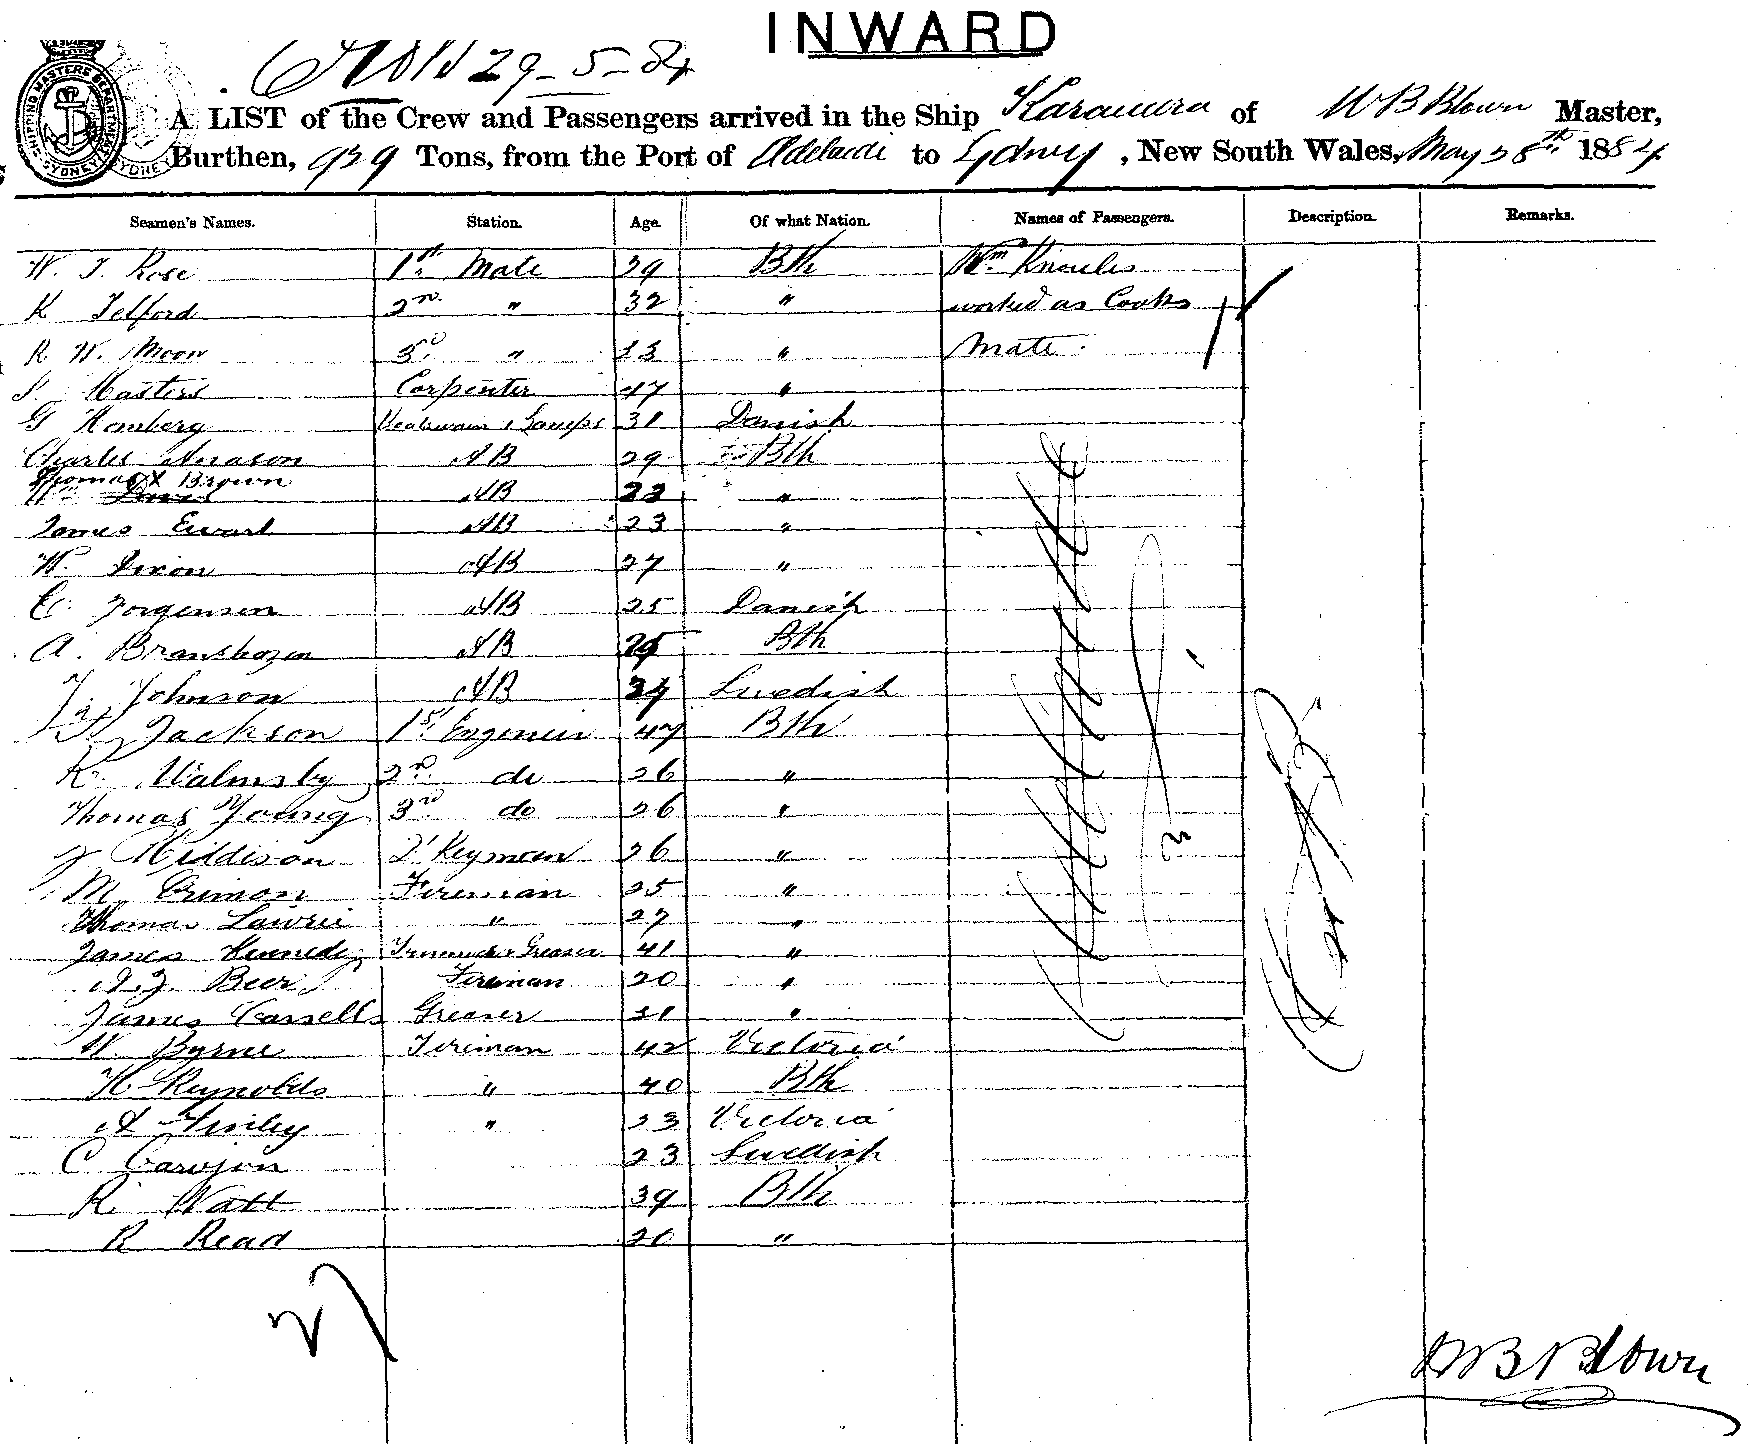 INWARD
29-5-84
A LIST of the Crew and Passengers arrived in the Ship of W B Blown Master,
Burthen, 939 Tons, from the Port of Adelaide to Sydney, New South Wales, May 28th 1884
SHIPPING MASTERS DEPARTMENT SYDNEY
Seamen's Names. Station. Age. Of what Nation. Names of Passengers. Description. Remarks.
W. J. Rose 1st Mate 39 Bth Wm Knowles
R Telford 2nd " 32 " worked as Cooks
R W. Moon 3d " 33 " Mate.
Masters Carpenter 47 "
G Homberg Boatswain & Lamps 31 Danish
Charles AB 29 Bth
Thomas X Brown AB 22 "
James Ewart AB 23 "
W. Dixon AB 27 "
C. Jorgensen AB 25 Danish
A. AB 25 Bth
J. Johnson AB 24 Swedish
Jackson 1st Engineer 47 Bth
R. Walmsby 2nd do 26 "
Thomas Young 3rd do 26 "
Hiddison "
M. Crimon Fireman 25 "
Thomas Lawrie " 27 "
James Kennedy Greaser 41 "
Beer Fireman 20 "
James Cassells Greaser 31 "
W. Byrne Fireman 42 Victoria
H. Reynolds " 40 Bth
A Finley " 23 Victoria
C 23 Swedish
R. Watt 39 Bth
R Read 20 "
27
W B Blown